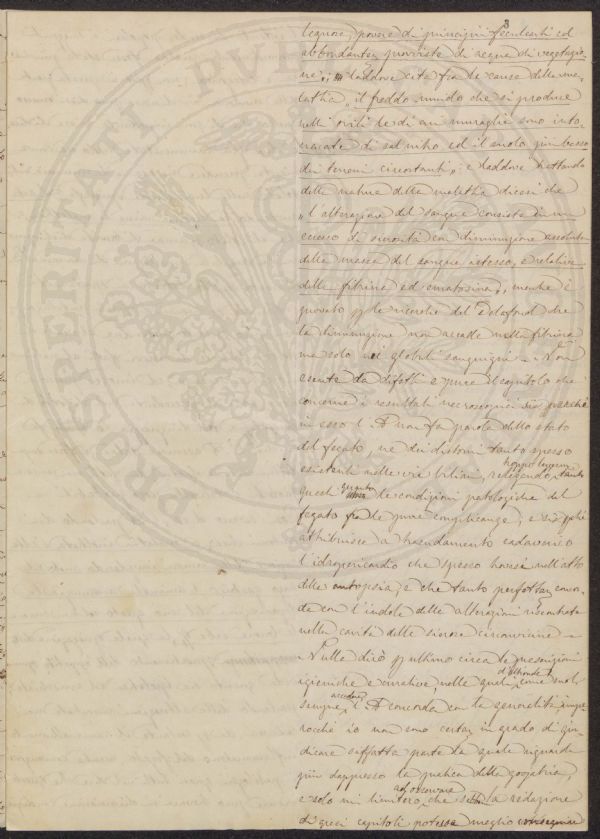 3
acquose, povere di principii feculenti ed
abbondante, provviste di acqua di vegetazio
ne"; laddove cita fra le cause della ma
lattia „ il freddo umido che si produce
nelli ovili le di cui muraglie sono into
nacate di salnitro ed il suolo più basso
dei terreni circostanti „; e laddove trattando
della natura della malattia dicesi che
„ l'alterazione del sangue consiste in un
eccesso di sierosità con diminuzione assoluta
della massa del sangue istesso, e relativa
della fibrina ed ematosina „, mentre è
provato le ricerche del Delafond che
la diminuzione non accade nella fibrina
ma solo nei globuli sanguigni — Non
esente da difetti è pure il capitolo che
concerne i resultati necroscopici
in esso l'A non fa parola dello stato
del fegato, ne dei distomi tanto spesso
esistenti nelle vie biliari, relegando troppo leggerm
quanto le condizioni patologiche del
fegato fra le pure complicanze, e
attribuisce a trasudamento cadaverico
l'idropericardio che spesso havvi nell'atto
della autopsia, e che tanto perfettam conco
da con l'indole delle alterazioni riscontrate
nella cavità delle sierose circonvicine —
Nulla dirò ultimo circa le prescrizioni
igieniche e curative, nelle quali d'altronde, come suole
sempre accadere, l'A concorda con la generalità impe
rocchè io non sono certam in grado di giu
dicare siffatta parte la quale riguarda
più dappresso la pratica della zoojatria,
e solo mi limiterò ad osservare che la redazione
di questi capitoli poteva meglio